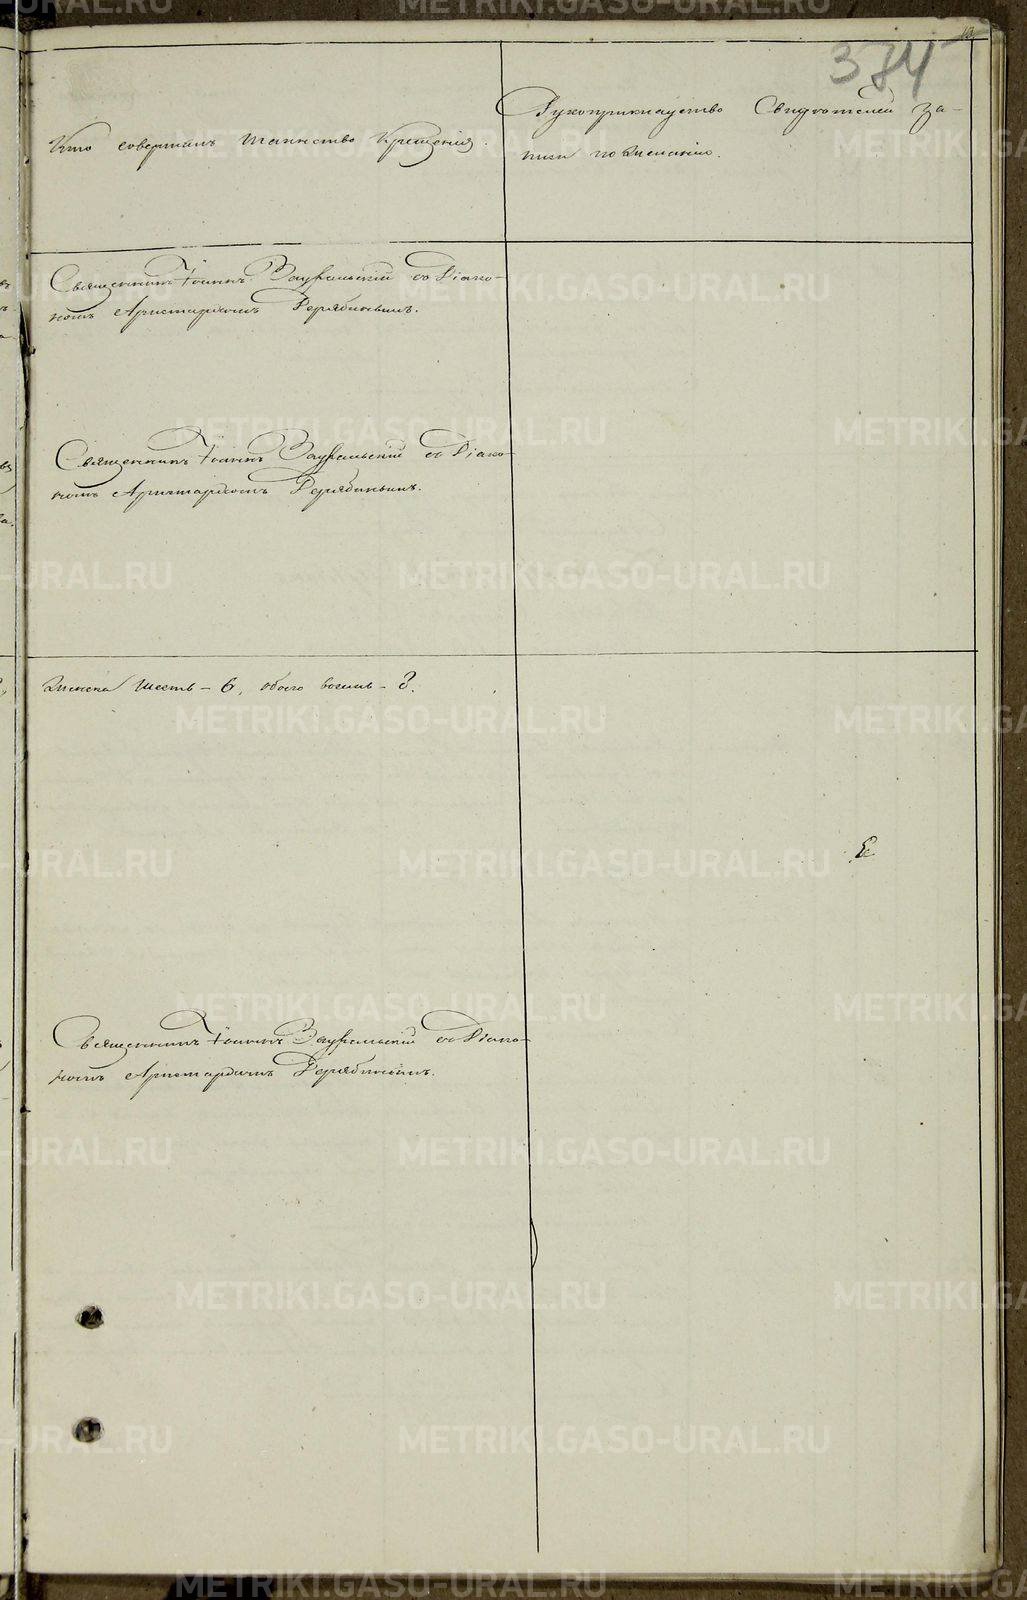 374
Кто совершалъ таинство Крещенія.
Рукоприкладство Свидѣтелей за-
писи по желанію.
Священникъ Іоаннъ Зауральскій съ Діако-
номъ Аристархомъ Дерябинымъ.
Священникъ Іоаннъ Зауральскій съ Діако-
номъ Аристархомъ Дерябинымъ.
Женска шесть – 6, обоего восемь – 8.
Священникъ Іоаннъ Зауральскій съ Діако-
номъ Аристархомъ Дерябинымъ.
METRIKI.GASO-URAL.RU